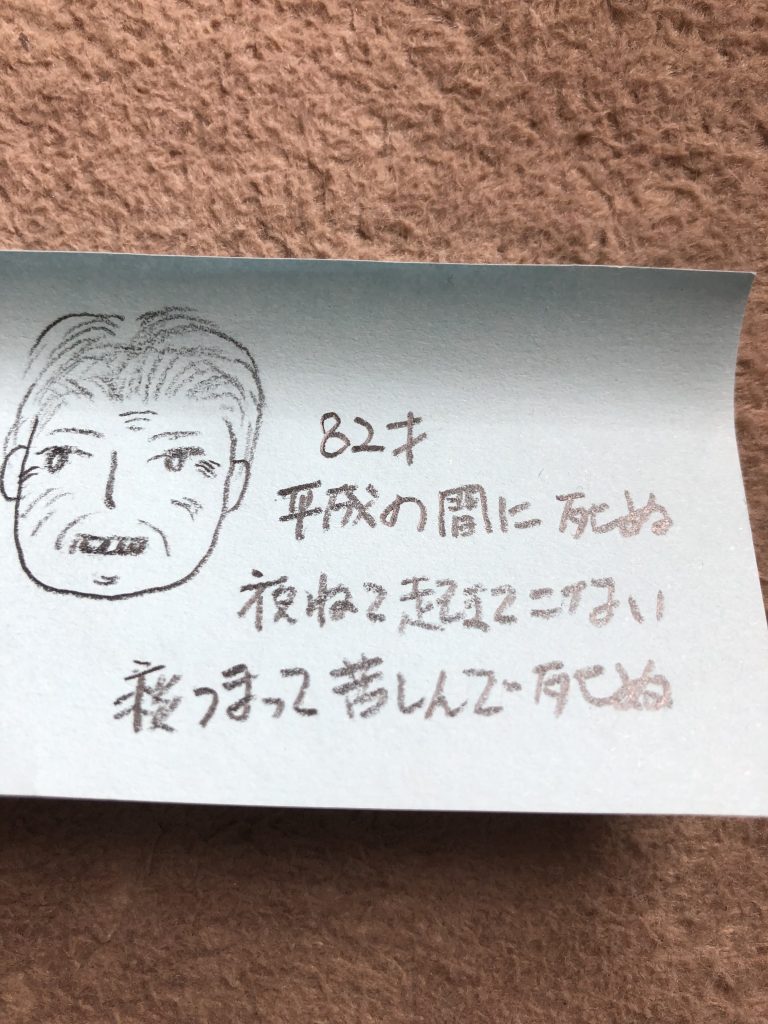 82才
平成の間に死ぬ
夜ねて起きてこない
つまって苦しんで死ぬ